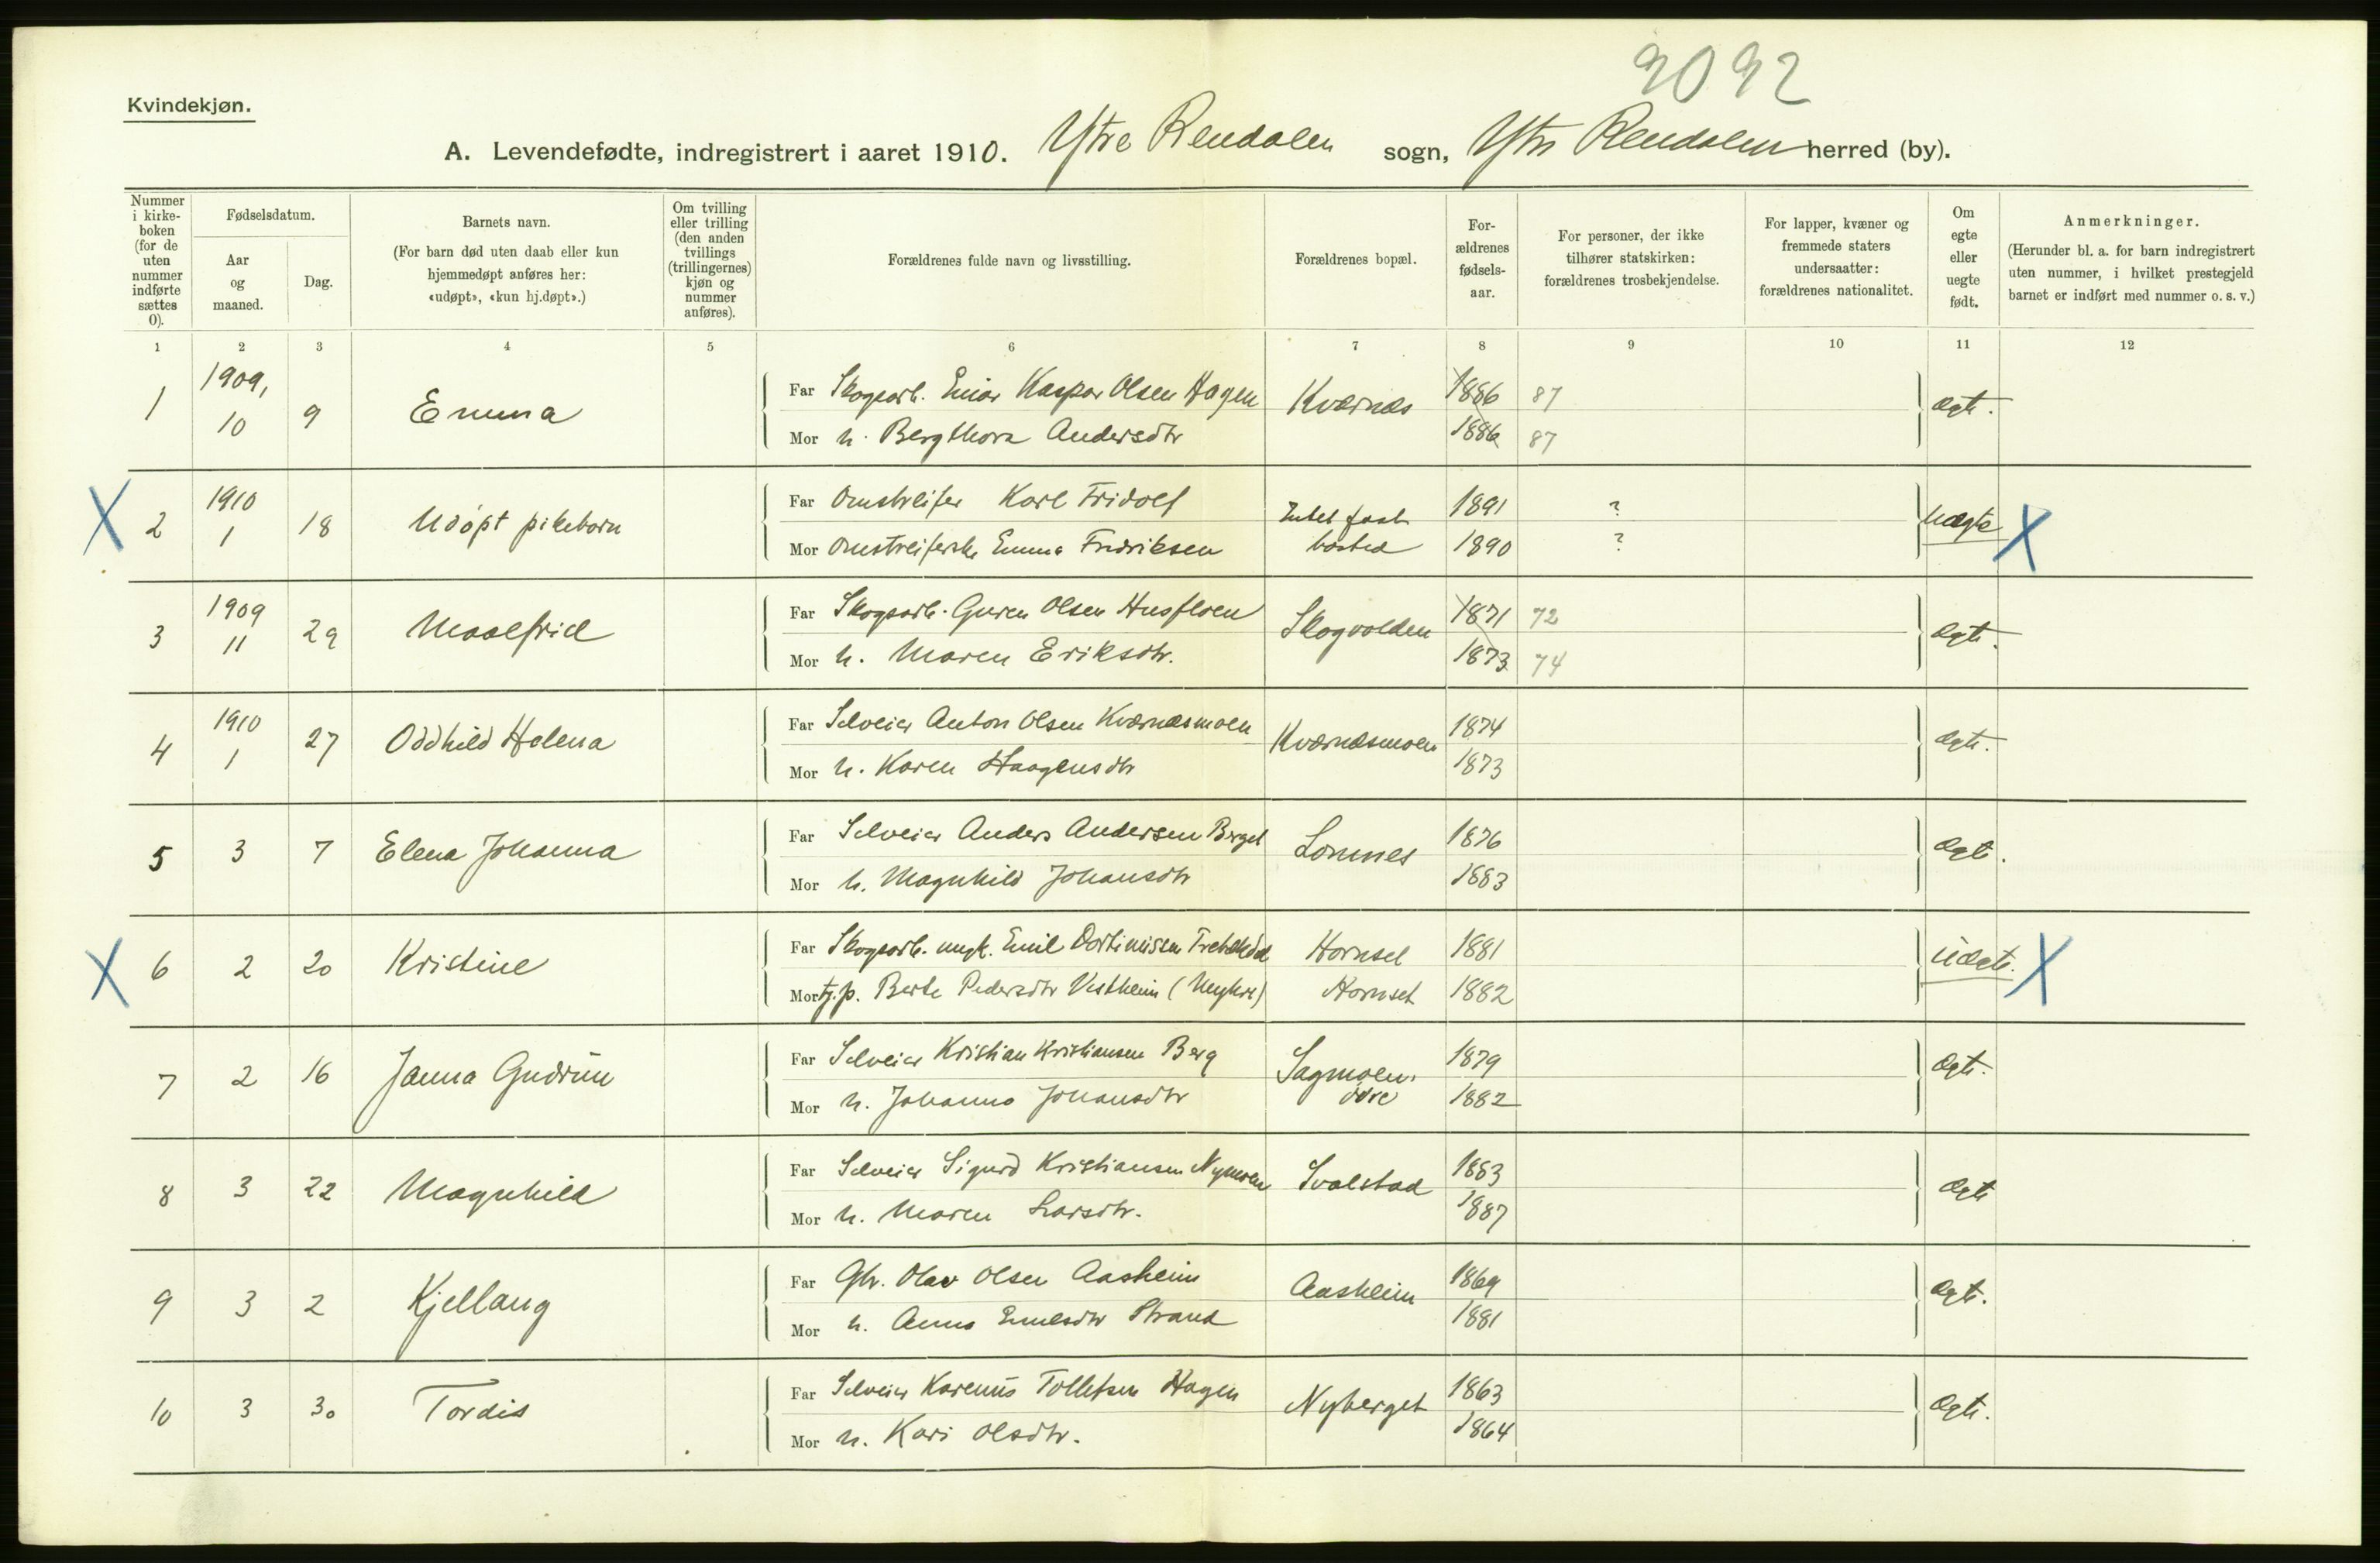 9092
Kvindekjøn.
A. Levendefødte, indregistrert i aaret 1910. Ytre Rendalen sogn, Ytre Rendalen herred (by).
Nummer i kirke-boken (for de uten nummer indførte sættes 0).
Fødselsdatum.
Aar og maaned.
Dag.
Barnets navn.
(For barn død uten daab eller kun
hjemmedøpt anføres her:
«udøpt», «kun hj.døpt».)
Om tvilling
eller trilling
(den anden
tvillings
(trillingernes)
kjøn og
nummer
anføres).
Forældrenes fulde navn og livsstilling.
Forældrenes bopæl.
For-
ældrenes
fødsels-
aar.
For personer, der ikke
tilhører statskirken:
forældrenes trosbekjendelse.
For lapper, kvæner og
fremmede staters
undersaatter:
forældrenes nationalitet.
Om
egte
eller
uegte
født.
Anmerkninger.
(Herunder bl. a. for barn indregistrert
uten nummer, i hvilket prestegjeld
barnet er indført med nummer o. s. v.)
1 2 3 4 5 6 7 8 9 10 11 12
1 1909, 10 9 Emma Far Skogsarb. Einar Kaspar Olsen Hagen Kværnæs 1886 87 ægte.
Mor h. Bergthora Andersdtr 1886 87
X 2 1910 1 18 Udøpt pikebarn Far Omstreifer Karl Fridolf Intet fast 1891 ? uægte X
Mor Omstreiferske Emma Fredriksen bosted 1890 ?
3 1909 11 29 Maalfrid Far Skogsarb. Olsen Husfloen Skogvolden 1871 72 ægte.
Mor h. Maren Eriksdtr. 1873 74
4 1910 1 27 Oddhild Helena Far Selveier Anton Olsen Kværnæsmoen Kværnæsmoen 1874 ægte.
Mor h. Karen Haagensdtr 1873
5 3 7 Elena Johanna Far Selveier Anders Andersen Berget Lomnes 1876 ægte.
Mor h. Magnhild Johansdtr 1883
X 6 2 20 Kristine Far Skogsarb. ungk. Emil Hornset 1881 uægte. X
Mor tj.p. Berte Pedersdtr Vestheim Hornset 1882
7 2 16 Janna Gudrun Far Selveier Kristian Kristiansen Berg Sagmoen, 1879 ægte.
Mor h. Johanna Johansdtr 1882
8 3 22 Magnhild Far Selveier Sigurd Kristiansen Nymoen Svalstad 1883 ægte
Mor h. Maren Larsdtr. 1887
9 3 2 Kjellaug Far Gbr. Olav Olsen Aasheim Aasheim 1869 ægte.
Mor h. Anna Emilsdtr Strand 1881
10 3 30 Tordis Far Selveier Karenus Tollefsen Hagen Nyberget 1863 ægte.
Mor h. Kari Olsdtr. 1864